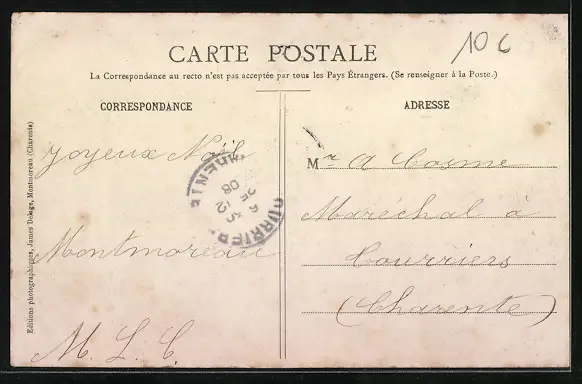 10 c
CARTE POSTALE
La Correspondance au recto n'est pas acceptée par tous les Pays Étrangers. (Se renseigner à la Poste.)
CORRESPONDANCE
ADRESSE
Joyeux Noël
Montmoreau
M. L. C.
Mr A Cosme
Maréchal à
Courriers
(Charente)
25 12
08
Editions photographiques, James Delage, Montmoreau (Charente)